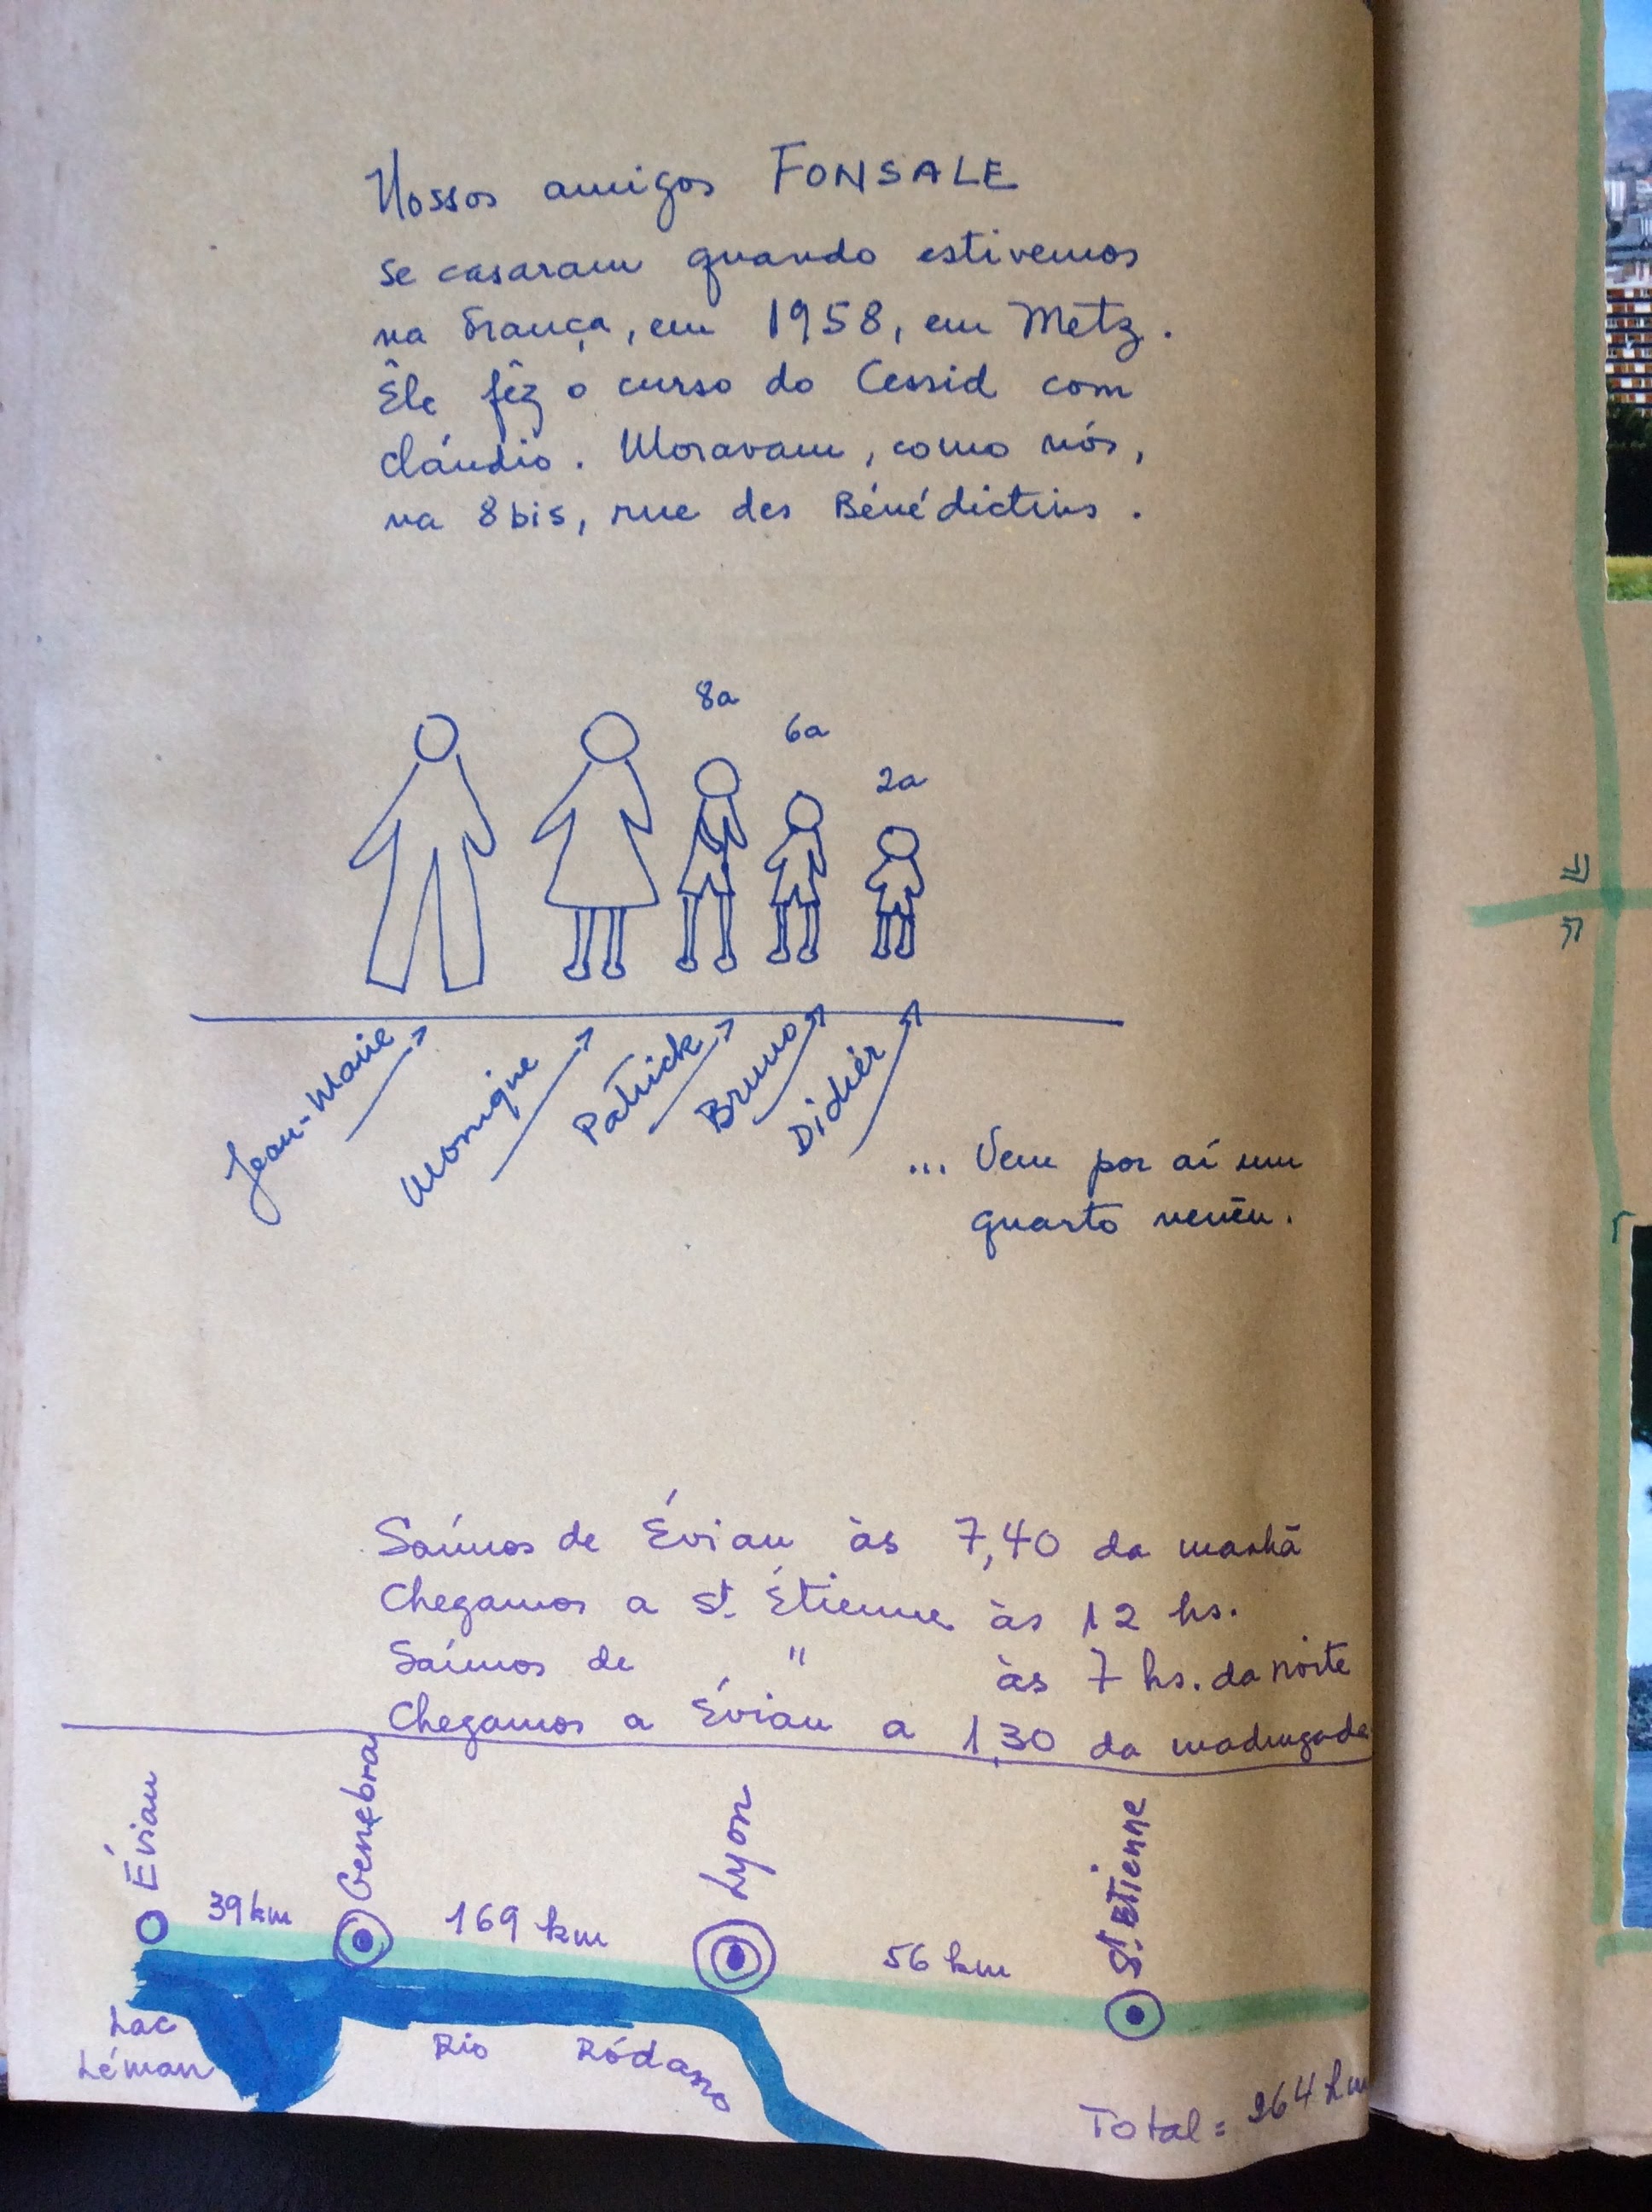 Nossos amigos FONSALE
se casaram quando estivemos
na França, em 1958, em Metz.
Êle fêz o curso do Cessid com
Cláudio. Moravam, como nós,
na 8 bis, rue des Bénédictins.
8a
6a
2a
Jean-Marie
Monique
Patrick
Bruno
Didiér
... Vem por aí um
quarto nenên.
Saímos de Évian às 7,40 da manhã
Chegamos a St. Étienne às 12 hs.
Saímos de " às 7 hs. da noite
Chegamos a Évian a 1,30 da madrugada
Évian
Genebra
Lyon
St. Etienne
39 km
169 km
56 km
Lac
Léman
Rio Ródano
Total = 264 km